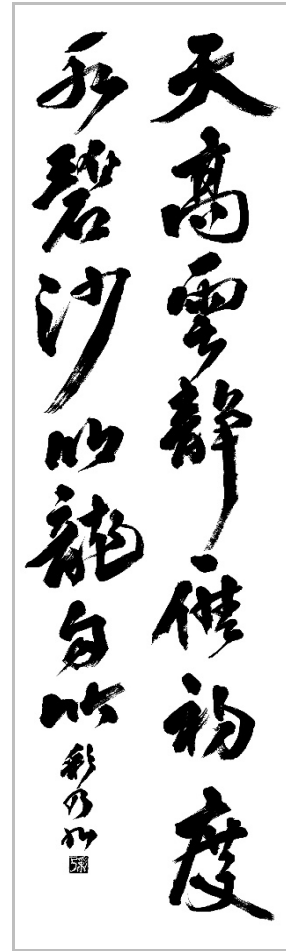 天高雲静雁初度
水碧沙明龍自吟
彩乃